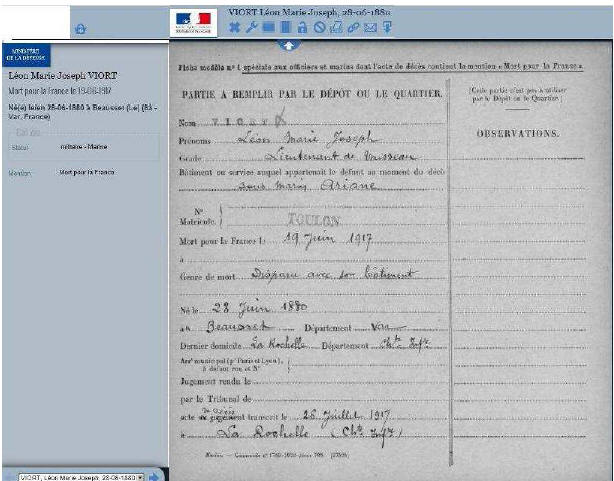 VIORT Léon Marie Joseph, 28-06-1880
MINISTÈRE
DE LA DÉFENSE
Léon Marie Joseph VIORT
Mort pour la France le 19-06-1917
Né(e) le/en 28-06-1880 à Beausset (Le) (83 -
Var, France)
Statut militaire - Marine
Mention Mort pour la France
VIORT, Léon Marie Joseph, 28-06-1880
Fiche modèle n° 1 spéciale aux officiers et marins dont l'acte de décès contient la mention « Mort pour la France ».
PARTIE A REMPLIR PAR LE DÉPOT OU LE QUARTIER.
Nom VIORT
Prénoms Léon Marie Joseph
Grade Lieutenant de Vaisseau
Bâtiment ou service auquel appartenait le défunt au moment du décès
sous marin Ariane
N°
Matricule. TOULON
Mort pour la France le 19 Juin 1917
à
Genre de mort Disparu avec son bâtiment
Né le 28 Juin 1880
à Beausset Département Var
Dernier domicile La Rochelle Département Chte Infre
Arrt municipal (pr Paris et Lyon),
à défaut rue et N°
Jugement rendu le
par le Tribunal de
acte de jugement transcrit le 26 Juillet 1917
à La Rochelle (Chte Infre)
(Cette partie n'est pas à utiliser
par le Dépôt ou le Quartier)
OBSERVATIONS.